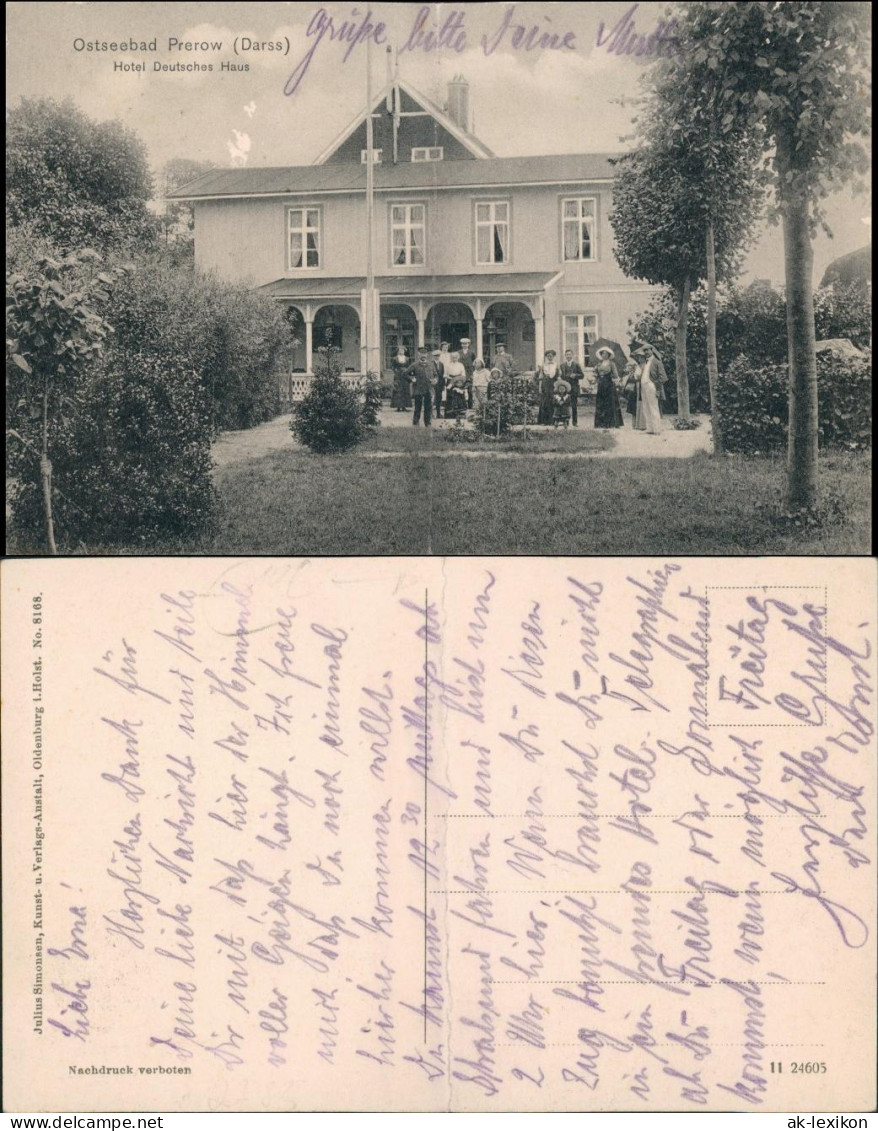 Ostseebad Prerow (Darss)
Hotel Deutsches Haus
Grüße bitte Deine Mutter
Julius Simonsen, Kunst- u. Verlags-Anstalt, Oldenburg i. Holst. No. 8168.
Liebe Erna!
Herzlichen Dank für
Deine liebe Nachricht und teile
Dir mit daß hier der Himmel
voller Geigen hängt. Ich freue
mich daß Du noch einmal
hierher kommen willst.
Du kannst 12.30 mittags ab
Stralsund fahren und bist um
2 Uhr hier. Wenn Du diesen
Zug benutzt brauchst Du nicht
in ein Hotel. Telegraphiere
ob Du Freitag oder Sonnabend
kommst, wenn möglich Freitag.
Herzliche Grüße
Dein
Nachdruck verboten
11 24605
ak-lexikon